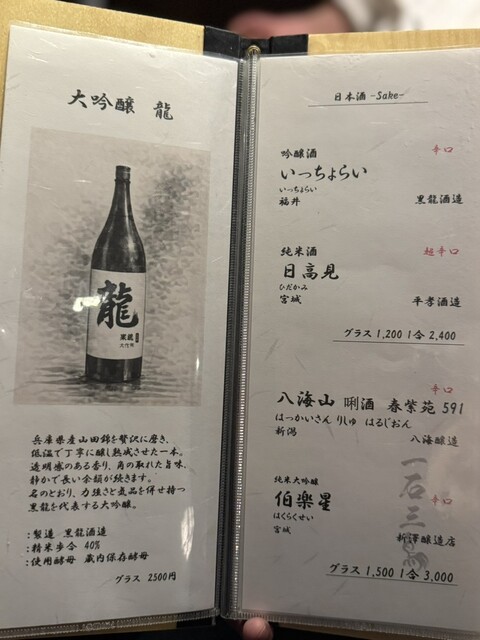 大吟醸 龍
龍
黒龍
大吟醸
兵庫県産山田錦を贅沢に磨き、
低温で丁寧に醸し熟成させた一本。
透明感のある香り、角の取れた旨味、
静かで長い余韻が続きます。
名のとおり、力強さと気品を併せ持つ
黒龍を代表する大吟醸。
:製造 黒龍酒造
:精米歩合 40%
:使用酵母 蔵内保存酵母
グラス 2500円
日本酒 -Sake-
吟醸酒 辛口
いっちょらい
いっちょらい
福井 黒龍酒造
純米酒 超辛口
日高見
ひだかみ
宮城 平孝酒造
グラス 1,200 1合 2,400
辛口
八海山 唎酒 春紫苑 591
はっかいさん りしゅ はるじおん
新潟 八海醸造
純米大吟醸
伯楽星 辛口
はくらくせい
宮城 新澤醸造店
グラス 1,500 1合 3,000
一石三鳥